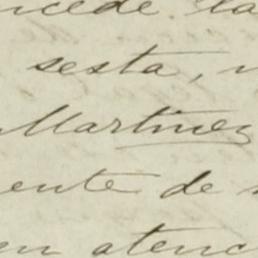 ncede la
sesta,
Martinez
ente de
en atenc